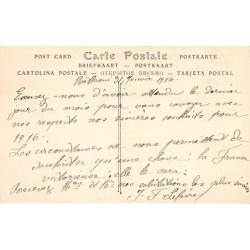 POST CARD Carte Postale POSTKARTE
BRIEFKAART - POSTKAART
CARTOLINA POSTALE - ОТКРЫТОЕ ПИСЬМО - TARJETA POSTAL
31 Janvier 1916.
Excusez-nous d'avoir attendu le dernier
jour du mois pour vous envoyer avec
nos respects nos sincères souhaits pour
1916.
Les circonstances ne nous permettent de
souhaiter qu'une chose : la France
victorieuse ; elle le sera.
Recevez Mme et Mr nos salutations les plus sincères